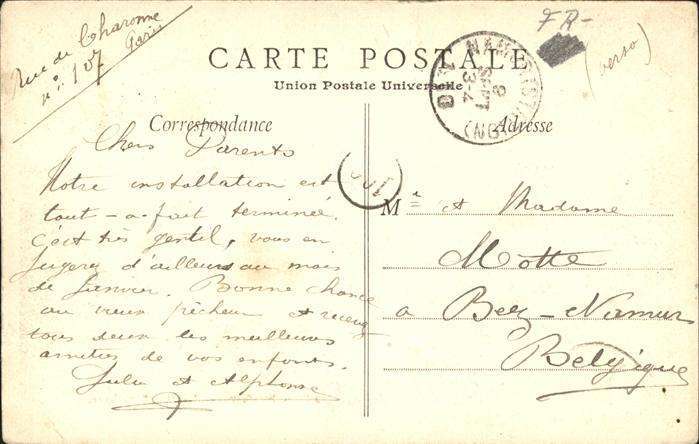 Rue de Charonne
n° 107 Paris
FR-
(verso)
CARTE POSTALE
Union Postale Universelle
Correspondance
Adresse
Chers Parents
Notre installation est
tout-a-fait terminée.
c'est très gentil, vous en
jugerez d'ailleurs au mois
de Janvier. Bonne chance
au vieux pêcheur et recevez
tous deux les meilleures
amitiés de vos enfants.
Lulu et Alphonse
Mr et Madame
Motte
a Bez-Namur
Belgique